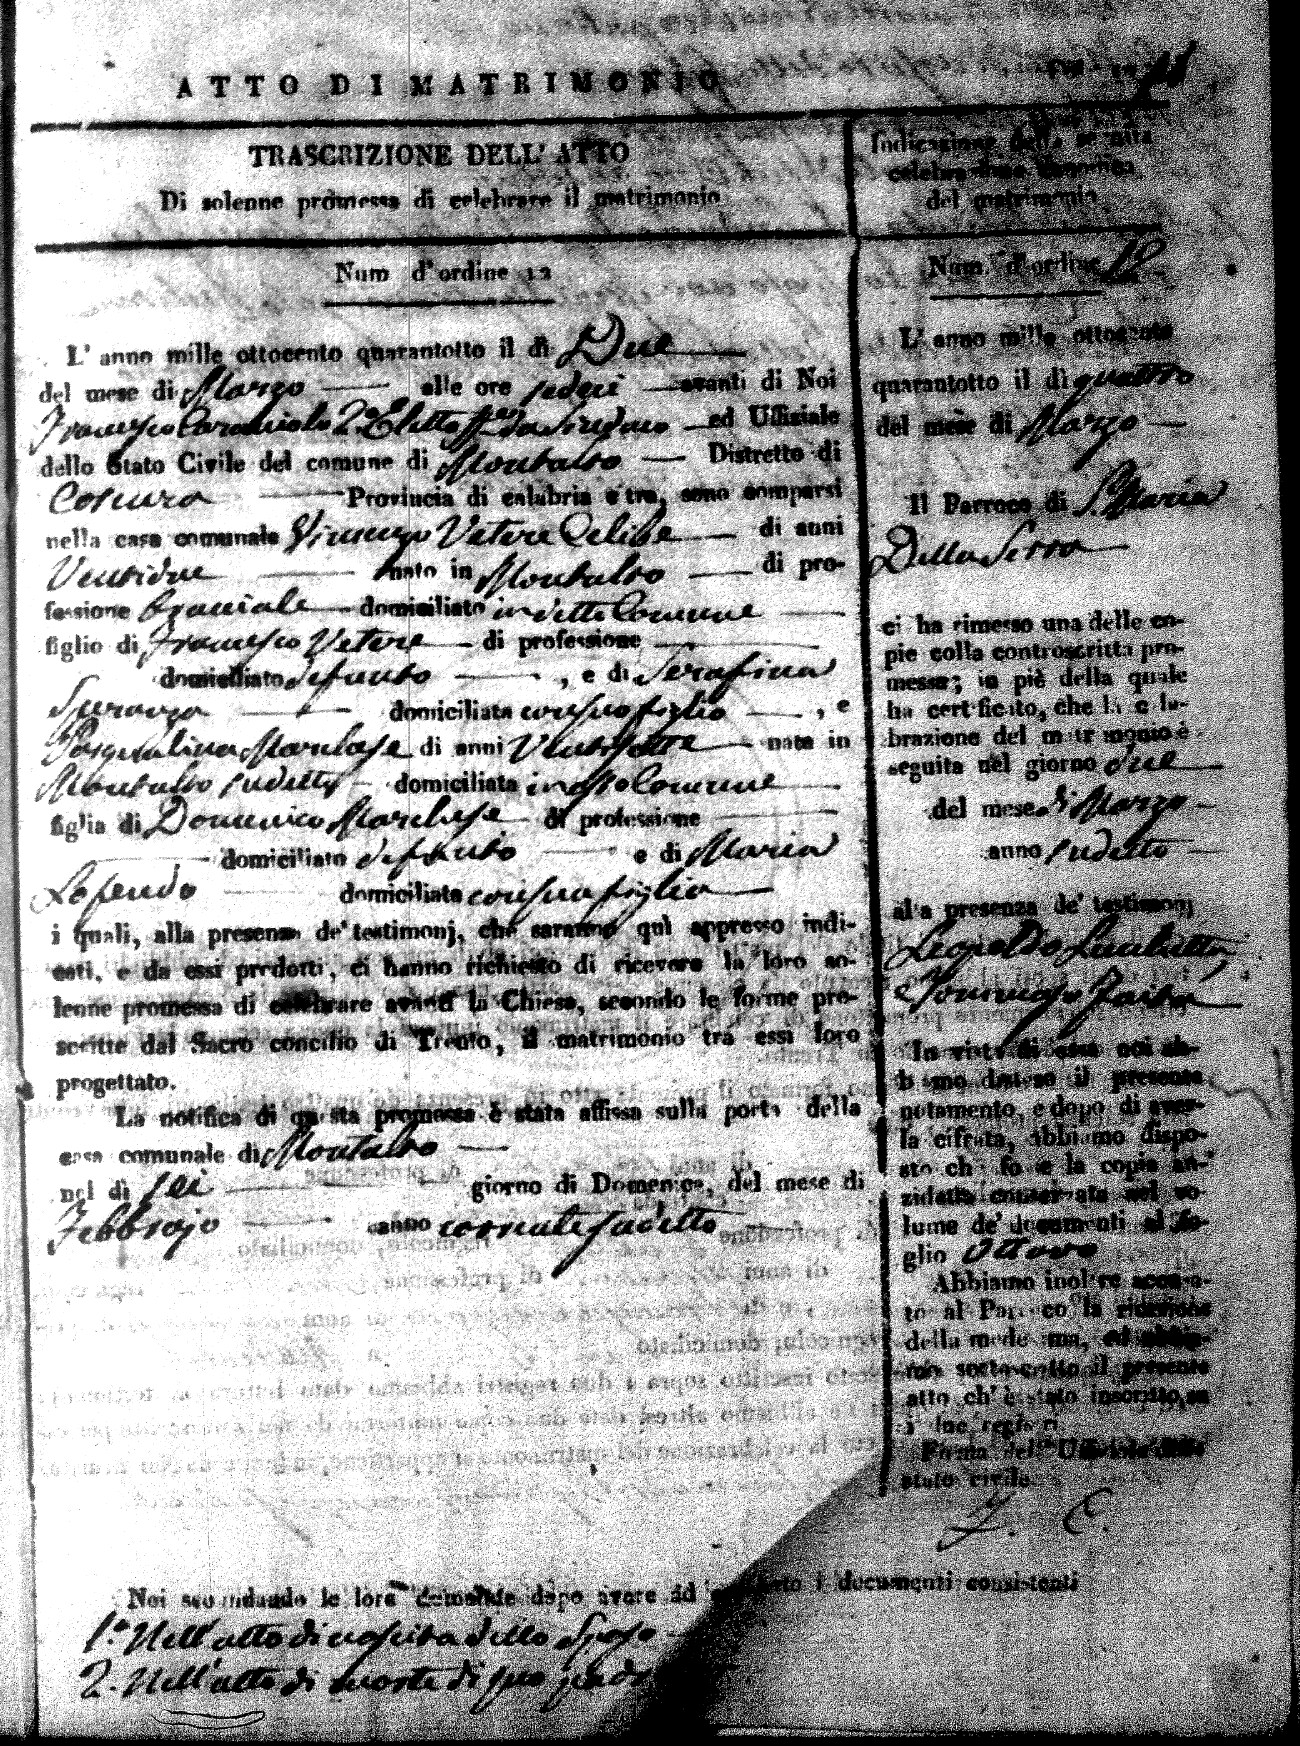 ATTO DI MATRIMONIO
TRASCRIZIONE DELL' ATTO
Di solenne promessa di celebrare il matrimonio
Num d'ordine 12
L' anno mille ottocento quarantotto il dì Due
del mese di Marzo alle ore sedeci avanti di Noi
Francesco 2º Eletto ed Uffiziale
dello Stato Civile del comune di Montalto Distretto di
Cosenza Provincia di calabria citra, sono comparsi
nella casa comunale Vincenzo Vetere Celibe di anni
Ventidue nato in Montalto di pro-
fessione Bracciale domiciliato in detto Comune
figlio di Francesco Vetere di professione
domiciliato defunto , e di Serafina
domiciliata con suo figlio , e
Pasqualina Marchese di anni Ventisette nata in
Montalto sudetto domiciliata in Comune
figlia di Domenico Marchese di professione
domiciliato defunto e di Maria
domiciliata con sua figlia
i quali, alla presenza de' testimonj, che saranno quì appresso indi-
cati, e da essi prodotti, ci hanno richiesto di ricevere la loro so-
lenne promessa di celebrare avanti la Chiesa, secondo le forme pre-
scritte dal Sacro concilio di Trento, il matrimonio tra essi loro
progettato.
La notifica di questa promessa è stata affissa sulla porta della
casa comunale di Montalto
nel dì sei giorno di Domenica, del mese di
Febbrajo anno corrente sudetto
Noi secondando le loro domande dopo avere ad i documenti consistenti
1.º Nell'atto di nascita dello Sposo
2. Nell'atto di morte di suo padre
Indicazione della seguita
celebrazione canonica
del matrimonio
Num. d'ordine 12
L' anno mille ottocento
quarantotto il dì quattro
del mese di Marzo
Il Parroco di S. Maria
Della Serra
ci ha rimesso una delle co-
pie colla controscritta pro-
messa; in piè della quale
ha certificato, che la ce le-
brazione del matrimonio è
seguita nel giorno due
del mese di Marzo
anno sudetto
alla presenza de' testimonj
Leopoldo
e Tommaso
In vista di essa noi ab-
biamo disteso il presente
notamento, e dopo di aver-
la cifrata, abbiamo dispo-
sto che fosse la copia an-
zidetta conservata nel vo-
lume de' documenti al fo-
glio ottavo
Abbiamo inoltre accusa-
to al Parroco la ricezione
della medesima, ed abbia-
mo sottoscritto il presente
atto ch' è stato inscritto su
i due registri
Firma dell' Uffiziale dello
stato civile.
F. C.